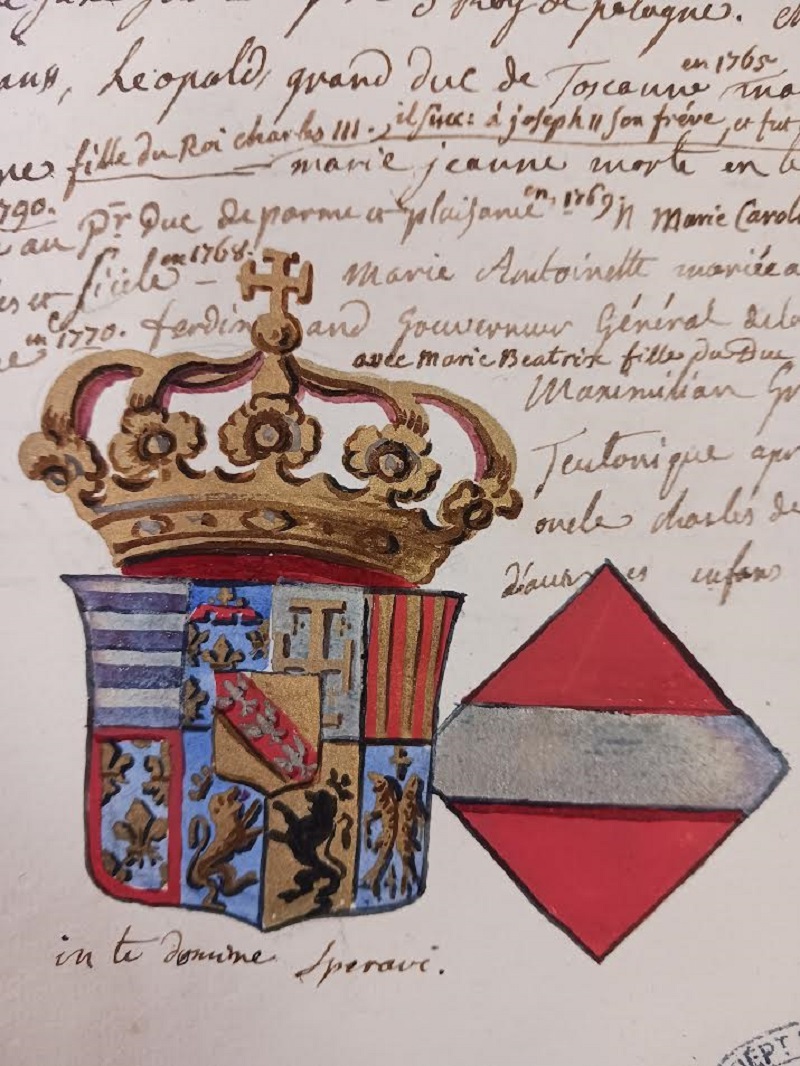 Roy de pologne.
Leopold, grand duc de Toscanne en 1765
fille du Roi Charles III., il succ: à joseph II son frére, et fut
marie jeanne morte en
1790.
au Pr Duc de parme et plaisance en 1769. Marie Carol
et Sicile en 1768. — Marie Antoinette mariée a
en 1770. ferdin and Gouverneur Général de la
avec Marie Beatrix fille du Duc
Maximilian Gr
Teutonique apr
oncle charles de
d'autr es enfans
in te domine speravi.
DÉPT